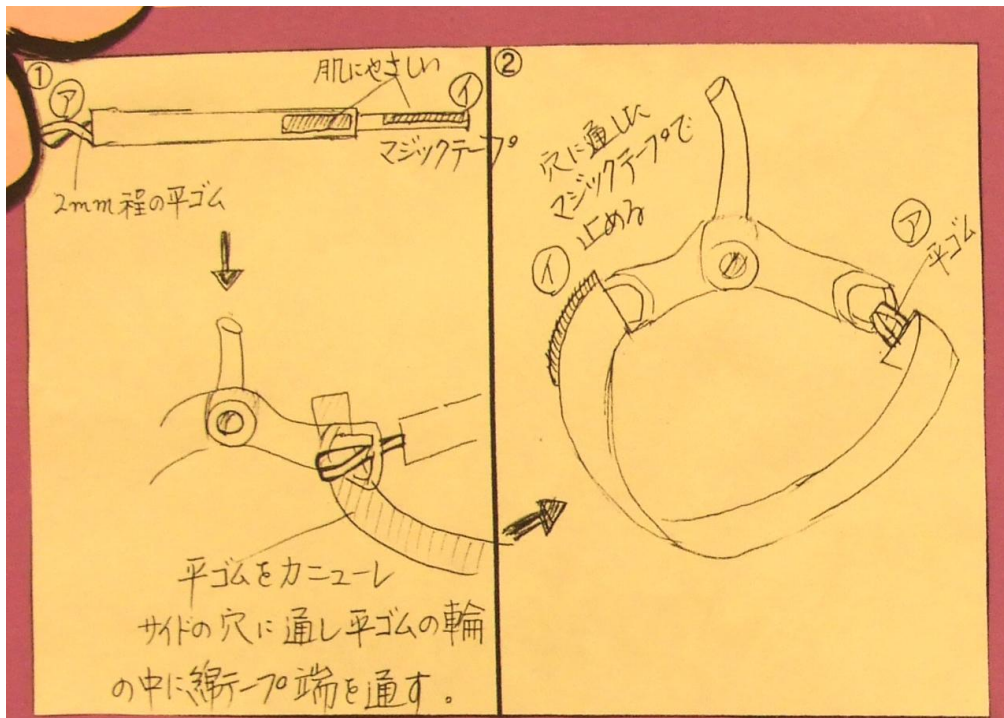 ①
肌にやさしい
㋐
㋑
マジックテープ
2mm程の平ゴム
平ゴムをカニューレ
サイドの穴に通し平ゴムの輪
の中に綿テープ端を通す。
②
穴に通した
マジックテープで
止める
㋑
㋐
平ゴム